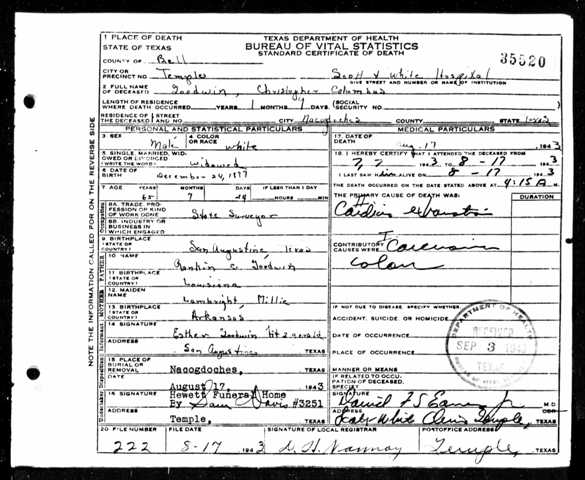 1 PLACE OF DEATH
STATE OF TEXAS
TEXAS DEPARTMENT OF HEALTH
BUREAU OF VITAL STATISTICS
STANDARD CERTIFICATE OF DEATH
35520
COUNTY OF Bell
CITY OR PRECINCT NO. Temple
Scott & White Hospital
GIVE STREET AND NUMBER OR NAME OF INSTITUTION
2 FULL NAME OF DECEASED Goodwin, Christopher Columbus
LENGTH OF RESIDENCE WHERE DEATH OCCURRED YEARS 1 MONTHS DAYS
(SOCIAL SECURITY NO.
RESIDENCE OF THE DECEASED STREET AND NO. CITY Nacogdoches COUNTY STATE Texas
PERSONAL AND STATISTICAL PARTICULARS
MEDICAL PARTICULARS
3 SEX Male
4 COLOR OR RACE white
17 DATE OF DEATH Aug. 17 1943
5 SINGLE, MARRIED, WIDOWED OR DIVORCED (WRITE THE WORD) Widowed
18 I HEREBY CERTIFY THAT I ATTENDED THE DECEASED FROM
1943 TO 8-17 1943
6 DATE OF BIRTH December 24, 1877
I LAST SAW him ALIVE ON 8-17 1943
THE DEATH OCCURRED ON THE DATE STATED ABOVE AT 4:15 A M.
7 AGE YEARS MONTHS DAYS IF LESS THAN 1 DAY
65 7 24 HOURS MIN
THE PRIMARY CAUSE OF DEATH WAS:
DURATION
8A. TRADE, PROFESSION OR KIND OF WORK DONE State Surveyor
8B. INDUSTRY OR BUSINESS IN WHICH ENGAGED
9 BIRTHPLACE (STATE OR COUNTRY) San Augustine, Texas
CONTRIBUTORY CAUSES WERE: Carcinoma
colon
10 NAME Rankin C. Goodwin
11 BIRTHPLACE (STATE OR COUNTRY) Louisiana
12 MAIDEN NAME Lambright, Millie
13 BIRTHPLACE (STATE OR COUNTRY) Arkansas
IF NOT DUE TO DISEASE, SPECIFY WHETHER:
ACCIDENT, SUICIDE OR HOMICIDE
DATE OF OCCURRENCE
14 SIGNATURE Esther Goodwin Fitzgerald
ADDRESS San Augustine, TEXAS
PLACE OF OCCURRENCE
15 PLACE OF BURIAL OR REMOVAL Nacogdoches, TEXAS
MANNER OR MEANS
DATE August 17, 1943
IF RELATED TO OCCUPATION OF DECEASED, SPECIFY
16 SIGNATURE Hewett Funeral Home
By #3251
ADDRESS Temple, TEXAS
SIGNATURE M.D.
ADDRESS Scott White Clinic Temple, TEXAS
20 FILE NUMBER FILE DATE SIGNATURE OF LOCAL REGISTRAR POSTOFFICE ADDRESS
222 8-17 1943 Temple, TEXAS
DEPARTMENT OF HEALTH
RECEIVED
SEP 3 1943
TEXAS
NOTE THE INFORMATION CALLED FOR ON THE REVERSE SIDE